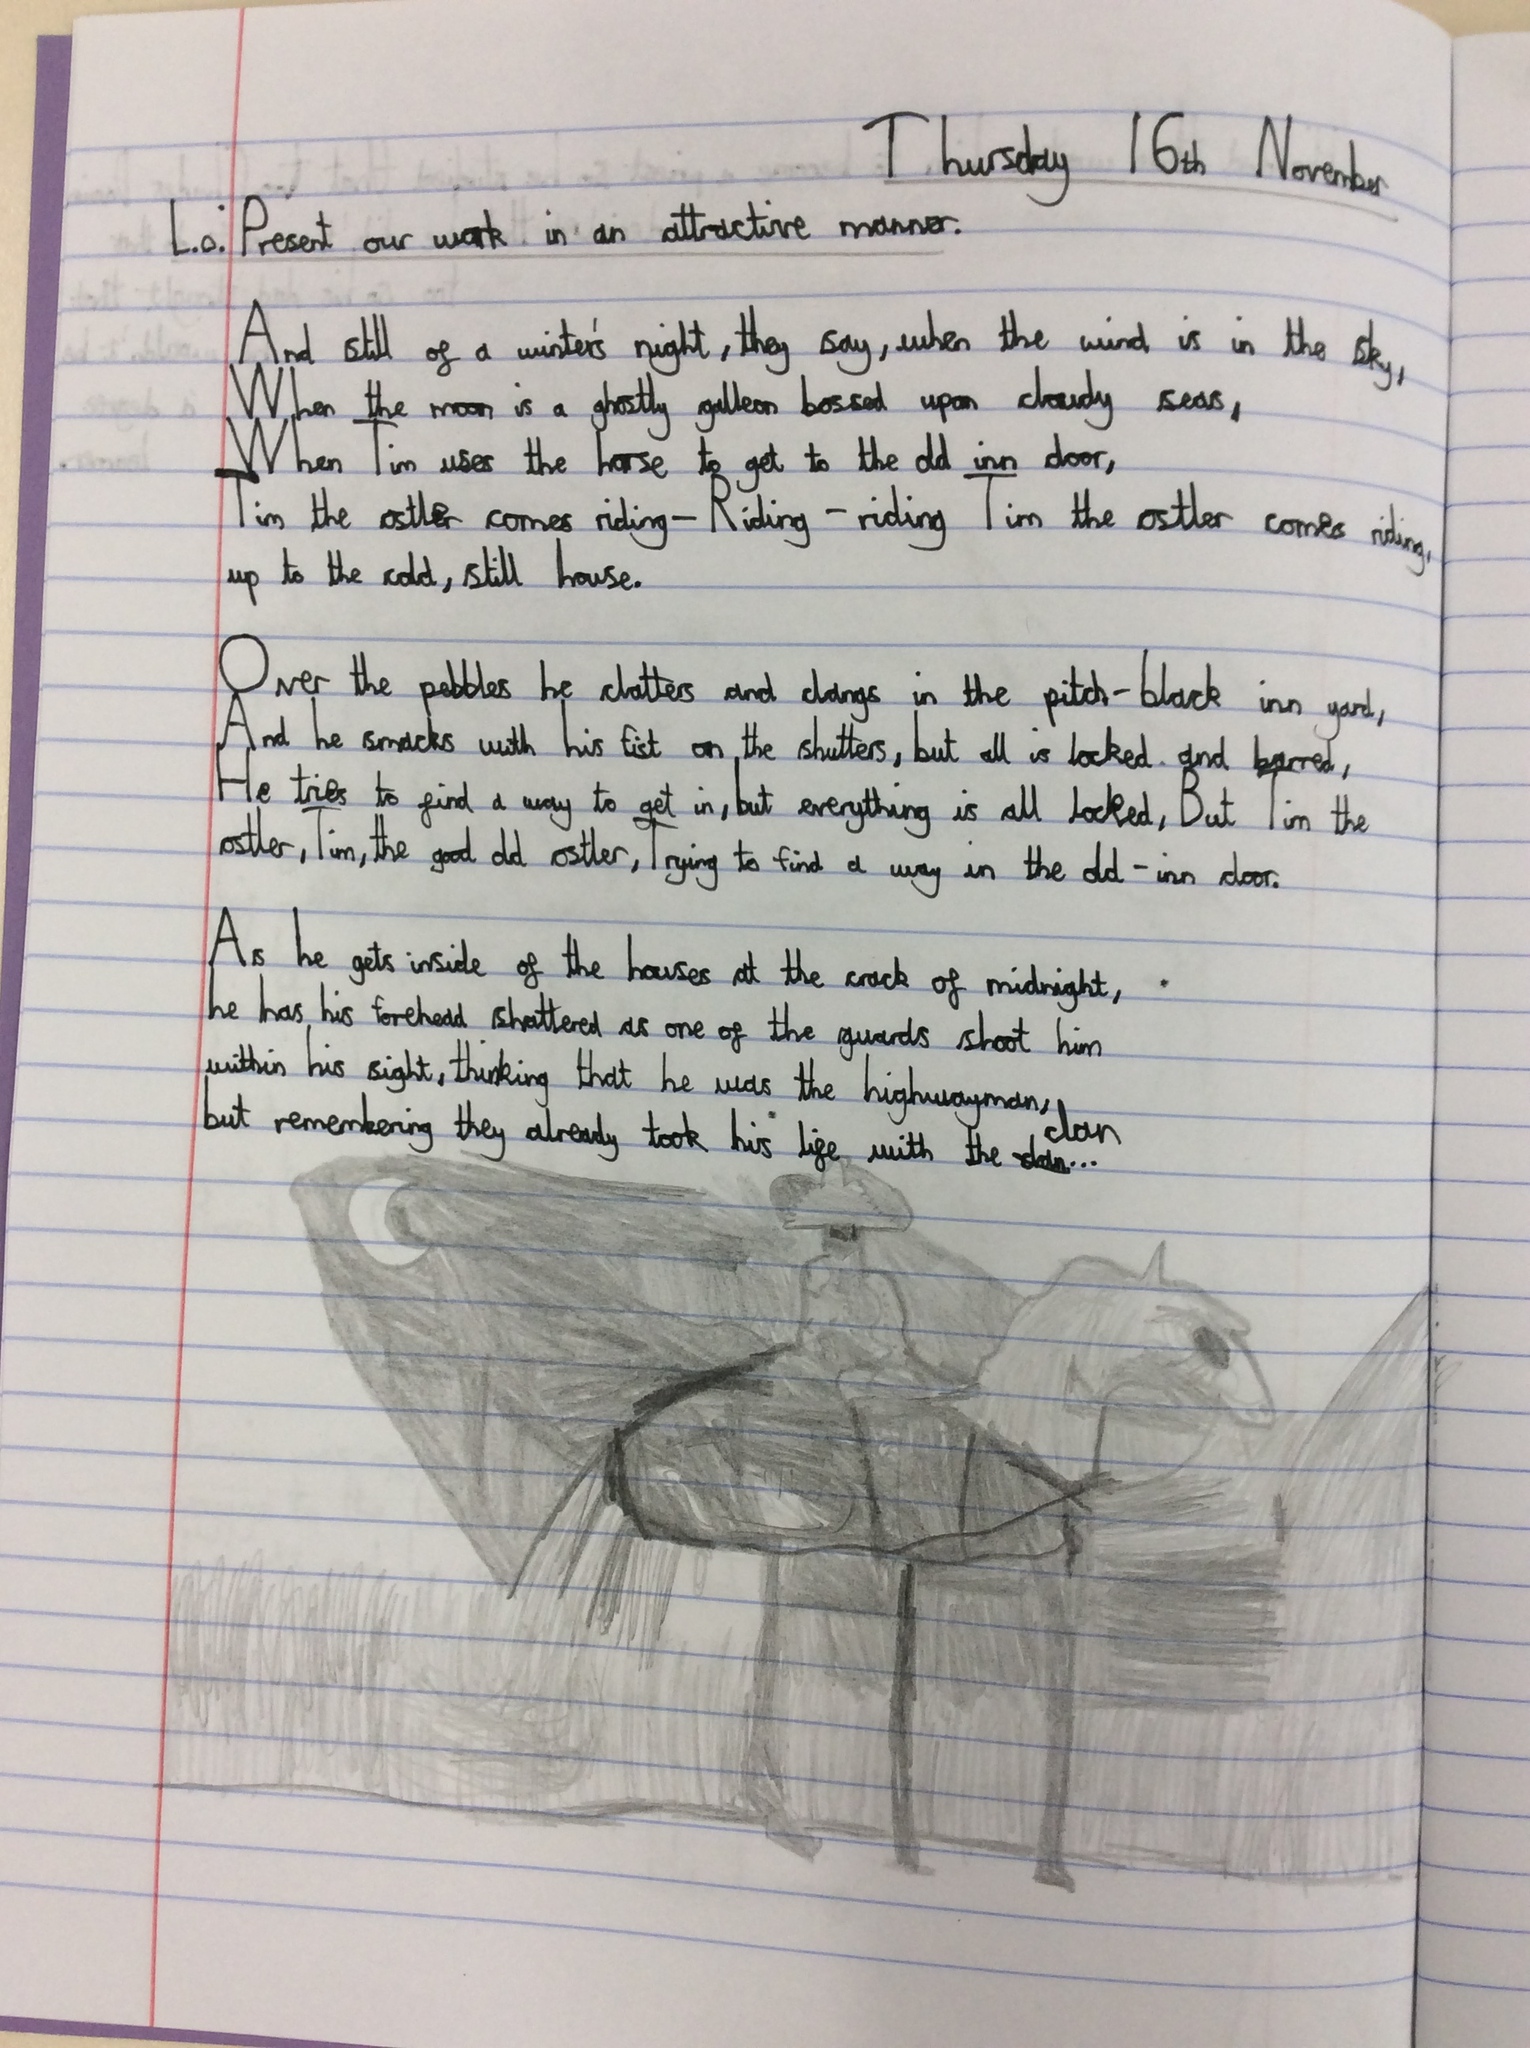 Thursday 16th November
L.o: Present our work in an attractive manner.
And still of a winter's night, they say, when the wind is in the sky,
When the moon is a ghostly galleon bossed upon cloudy seas,
When Tim uses the horse to get to the old inn door,
Tim the ostler comes riding— Riding — riding Tim the ostler comes riding,
up to the cold, still house.
Over the pebbles he clatters and clangs in the pitch-black inn yard,
And he smacks with his fist on the shutters, but all is locked and barred,
He tries to find a way to get in, but everything is all locked, But Tim the
ostler, Tim, the good old ostler, Trying to find a way in the old-inn door.
As he gets inside of the houses at the crack of midnight,
he has his forehead shattered as one of the guards shoot him
within his sight, thinking that he was the highwayman,
but remembering they already took his life with the clan...